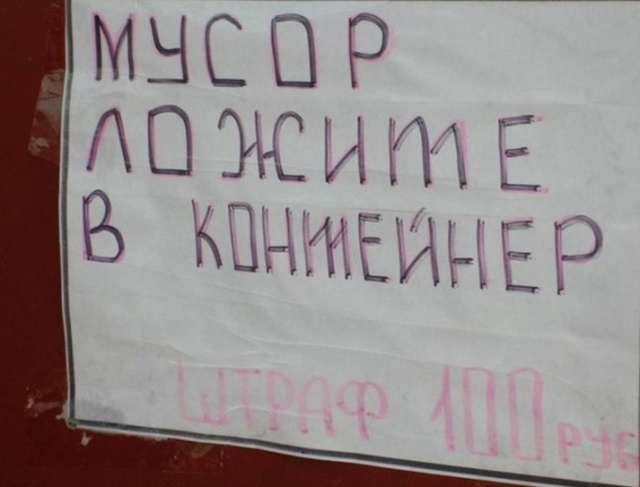 МУСОР
ЛОЖИТЕ
В КОНТЕЙНЕР
ШТРАФ 100 РУБ